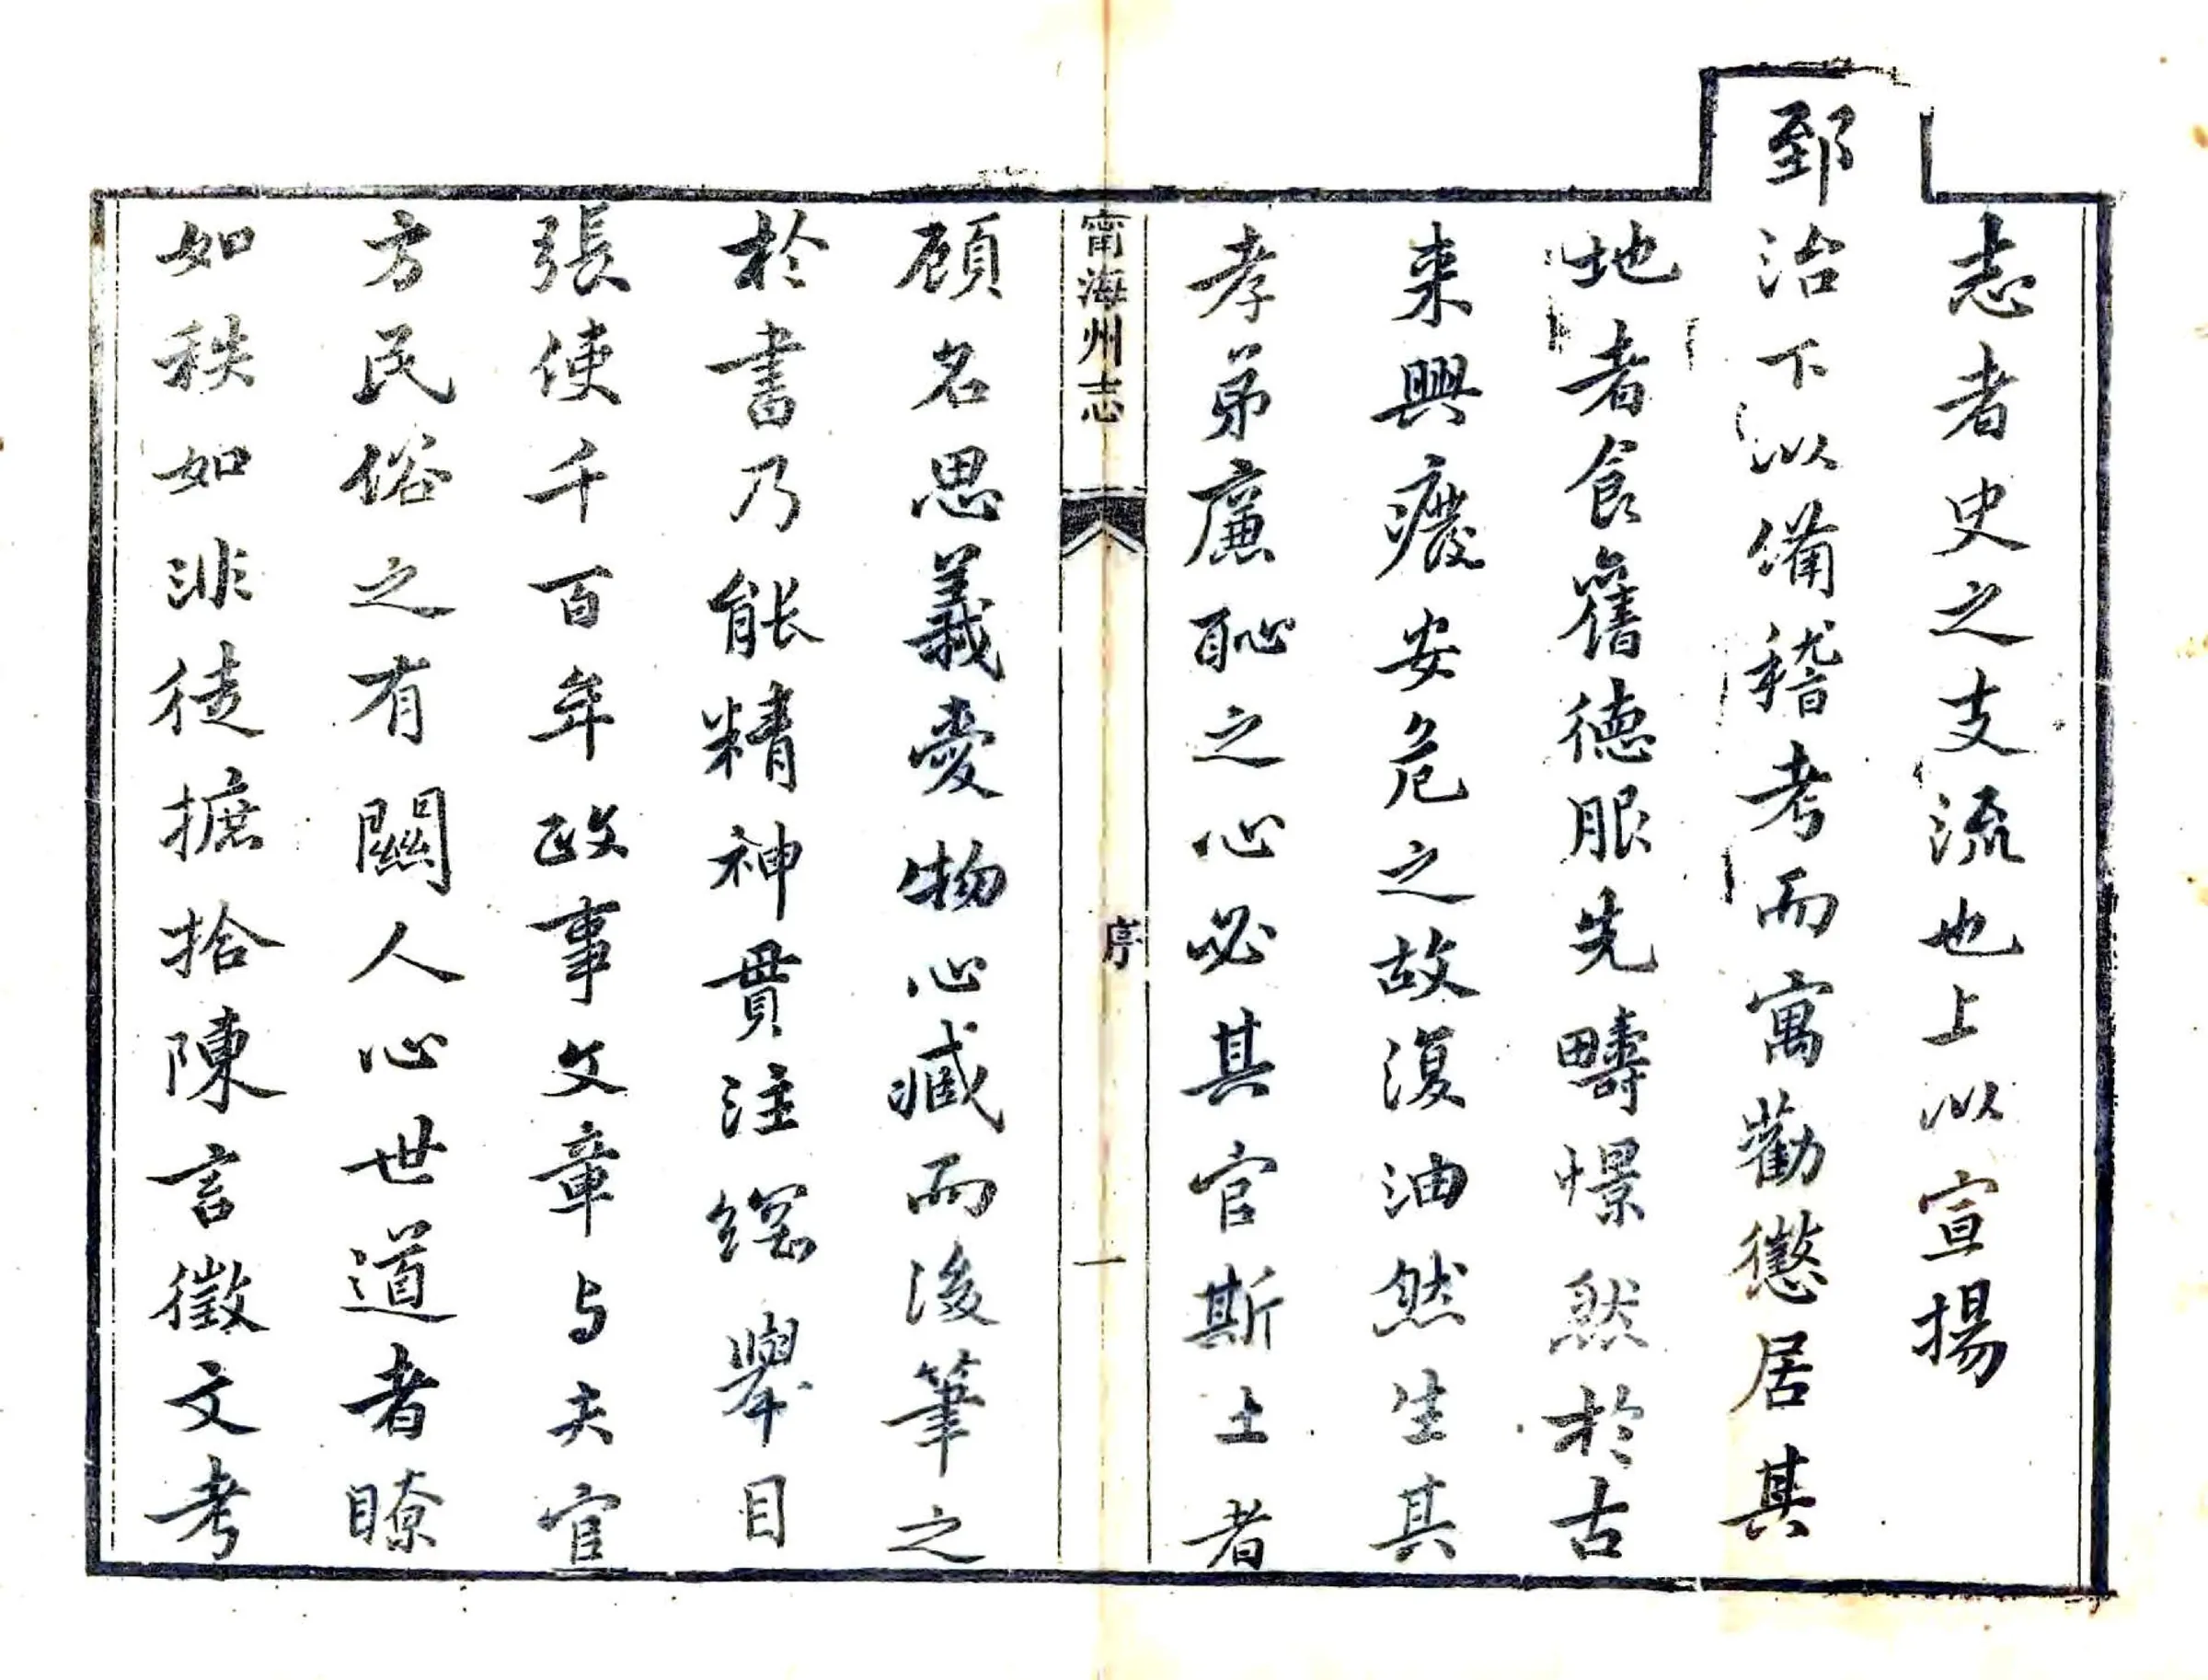 志者史之支流也上以宣揚
郅治下以備稽考而寓勸懲居其
地者食舊德服先疇憬然於古
來興癈安危之故復油然生其
孝弟廉恥之心必其官斯土者
甯海州志
序
一
顧名思義愛物心臧而後筆之
於書乃能精神貫注綱舉目
張使千百年政事文章与夫官
方民俗之有關人心世道者瞭
如秩如非徒摭拾陳言徵文考